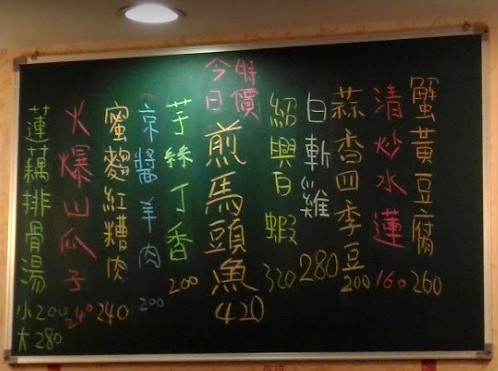 蟹黃豆腐 260
清炒水蓮 160
蒜香四季豆 200
白斬雞 280
紹興白蝦 320
特價
今日
煎馬頭魚 420
芋絲丁香 200
京醬羊肉 200
蜜麴紅糟肉 240
火爆山瓜子 240
蓮藕排骨湯 小200
大280